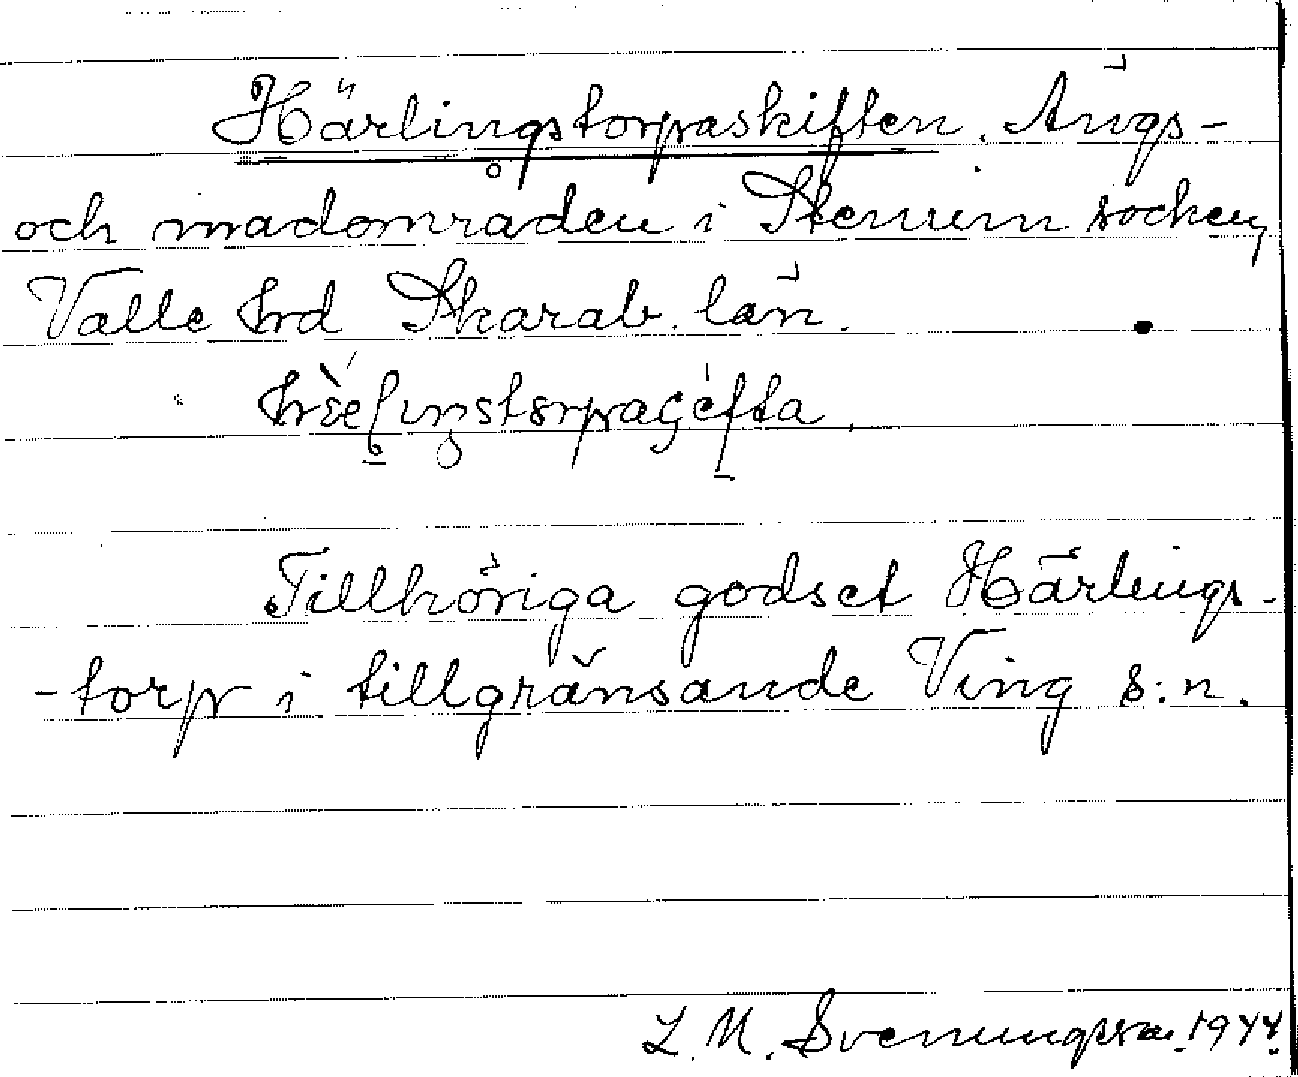 Härlingstorpaskiften. Ängs-
och madområden i Stenum socken,
Valle hrd Skarab. län.
Tillhöriga godset Härlings-
-torp i tillgränsande Ving s:n.
L. M. Svenungsson. 1944.